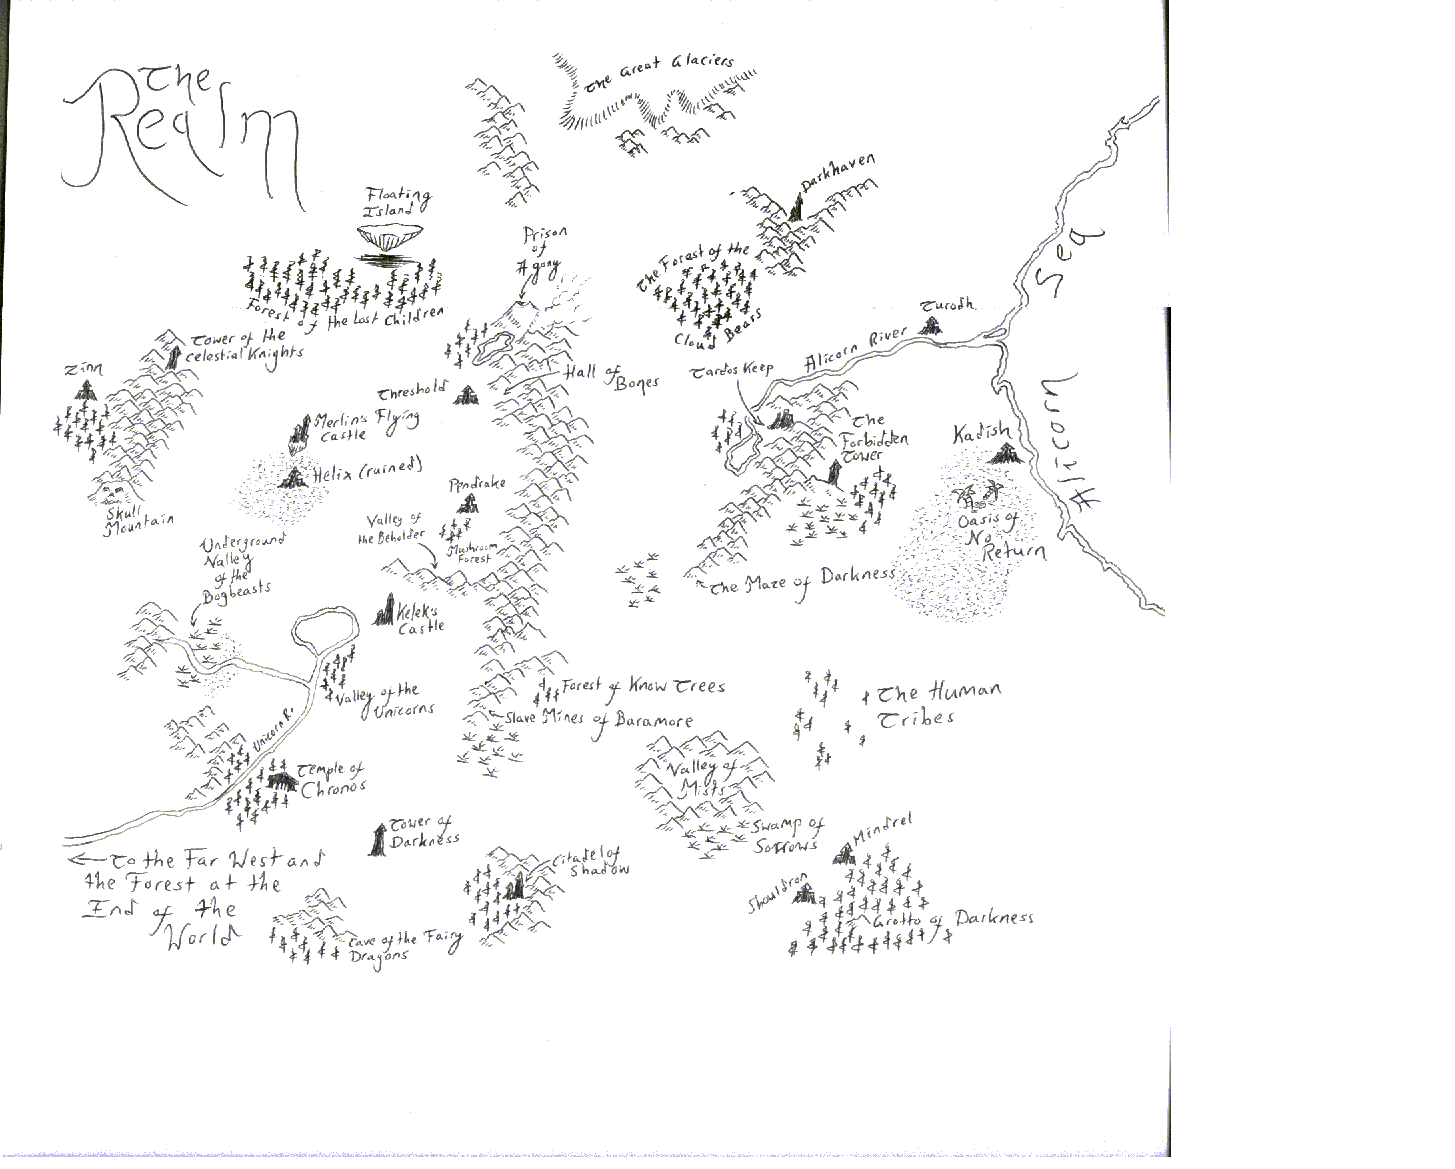 The
Realm
The Great Glaciers
Darkhaven
Floating
Island
Prison
of
Agony
The Forest of the
Cloud Bears
Sea
Forest of the Lost Children
Tower of the
Celestial Knights
Zinn
Turodh
Alicorn River
Tardos Keep
Hall of
Bones
Threshold
Merlin's Flying
Castle
The
Forbidden
Tower
Kadish
Alicorn
Helix (ruined)
Pendrake
Skull
Mountain
Valley of
the Beholder
Mushroom
Forest
Oasis of
No
Return
Underground
Valley
of the
Bogbeasts
The Maze of Darkness
Kelek's
Castle
Valley of the
Unicorns
Forest of Know Trees
Slave Mines of Baramore
The Human
Tribes
Unicorn R.
Valley of
Mists
Temple of
Chronos
Tower of
Darkness
Swamp of
Sorrows
Mindrel
Citadel of
Shadow
To the Far West and
the Forest at the
End of the
World
Shauldron
Grotto of Darkness
Cave of the Fairy
Dragons